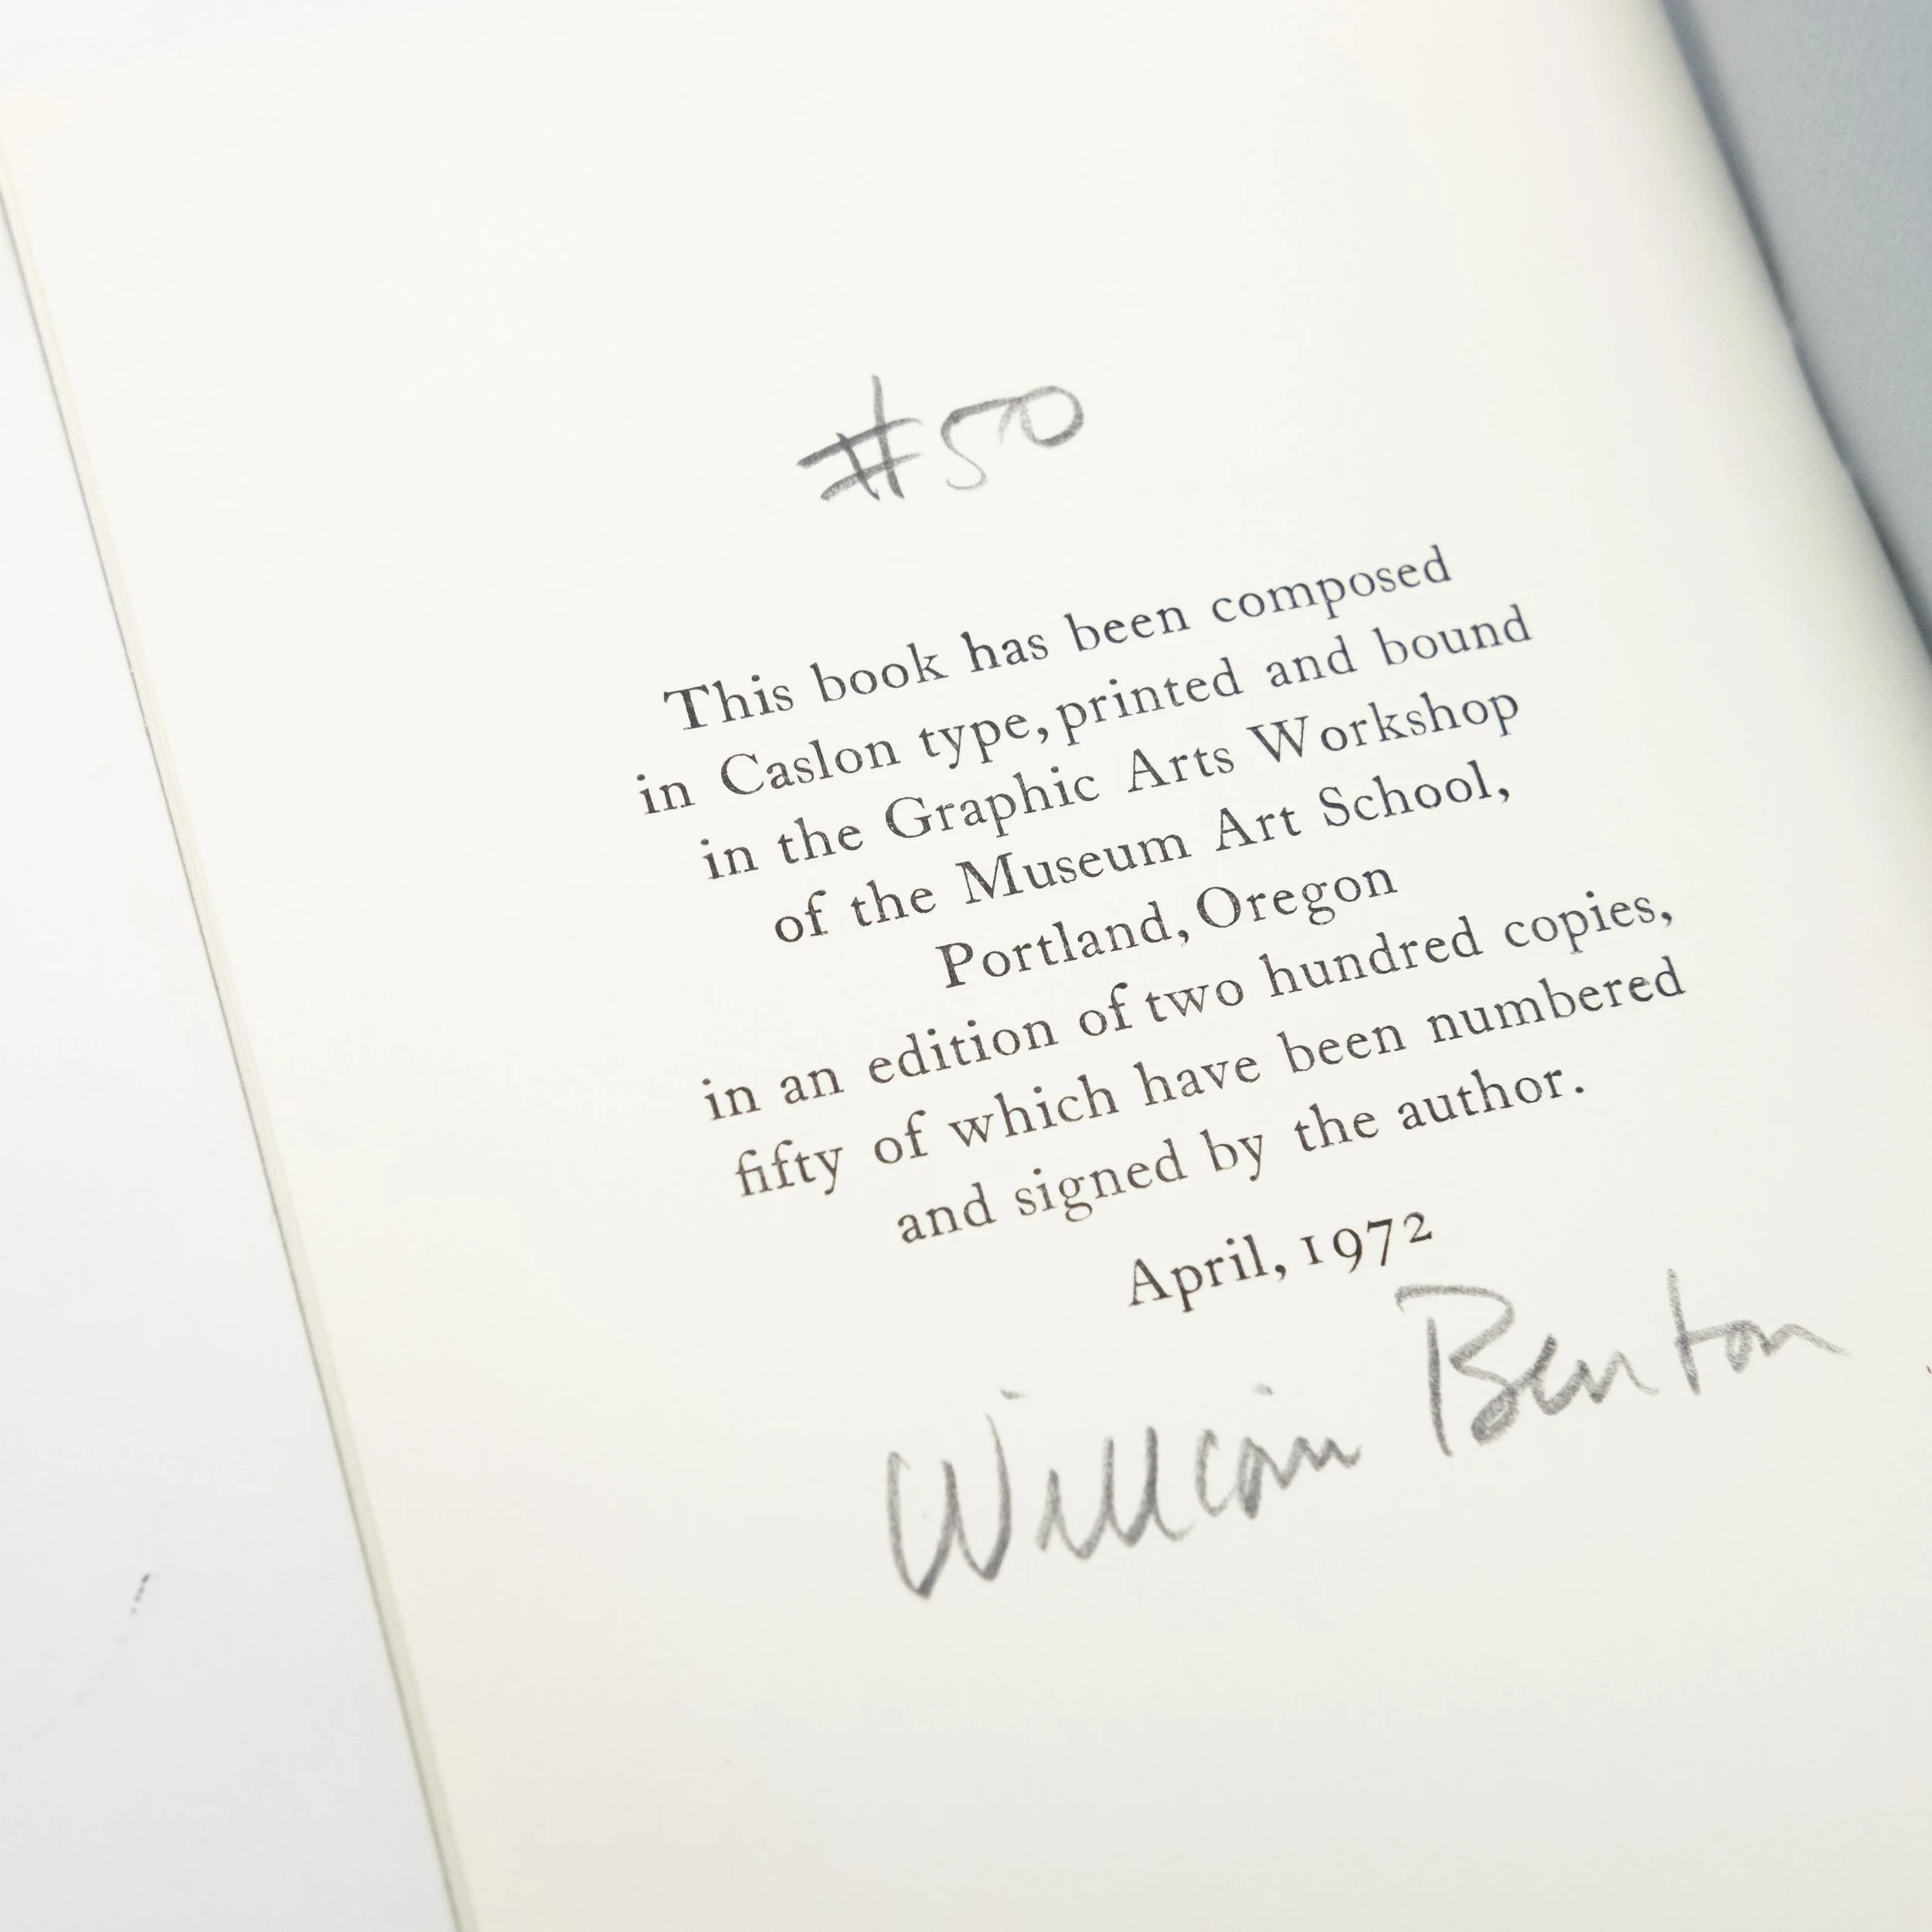 #50
This book has been composed
in Caslon type, printed and bound
in the Graphic Arts Workshop
of the Museum Art School,
Portland, Oregon
in an edition of two hundred copies,
fifty of which have been numbered
and signed by the author.
April, 1972
William Benton